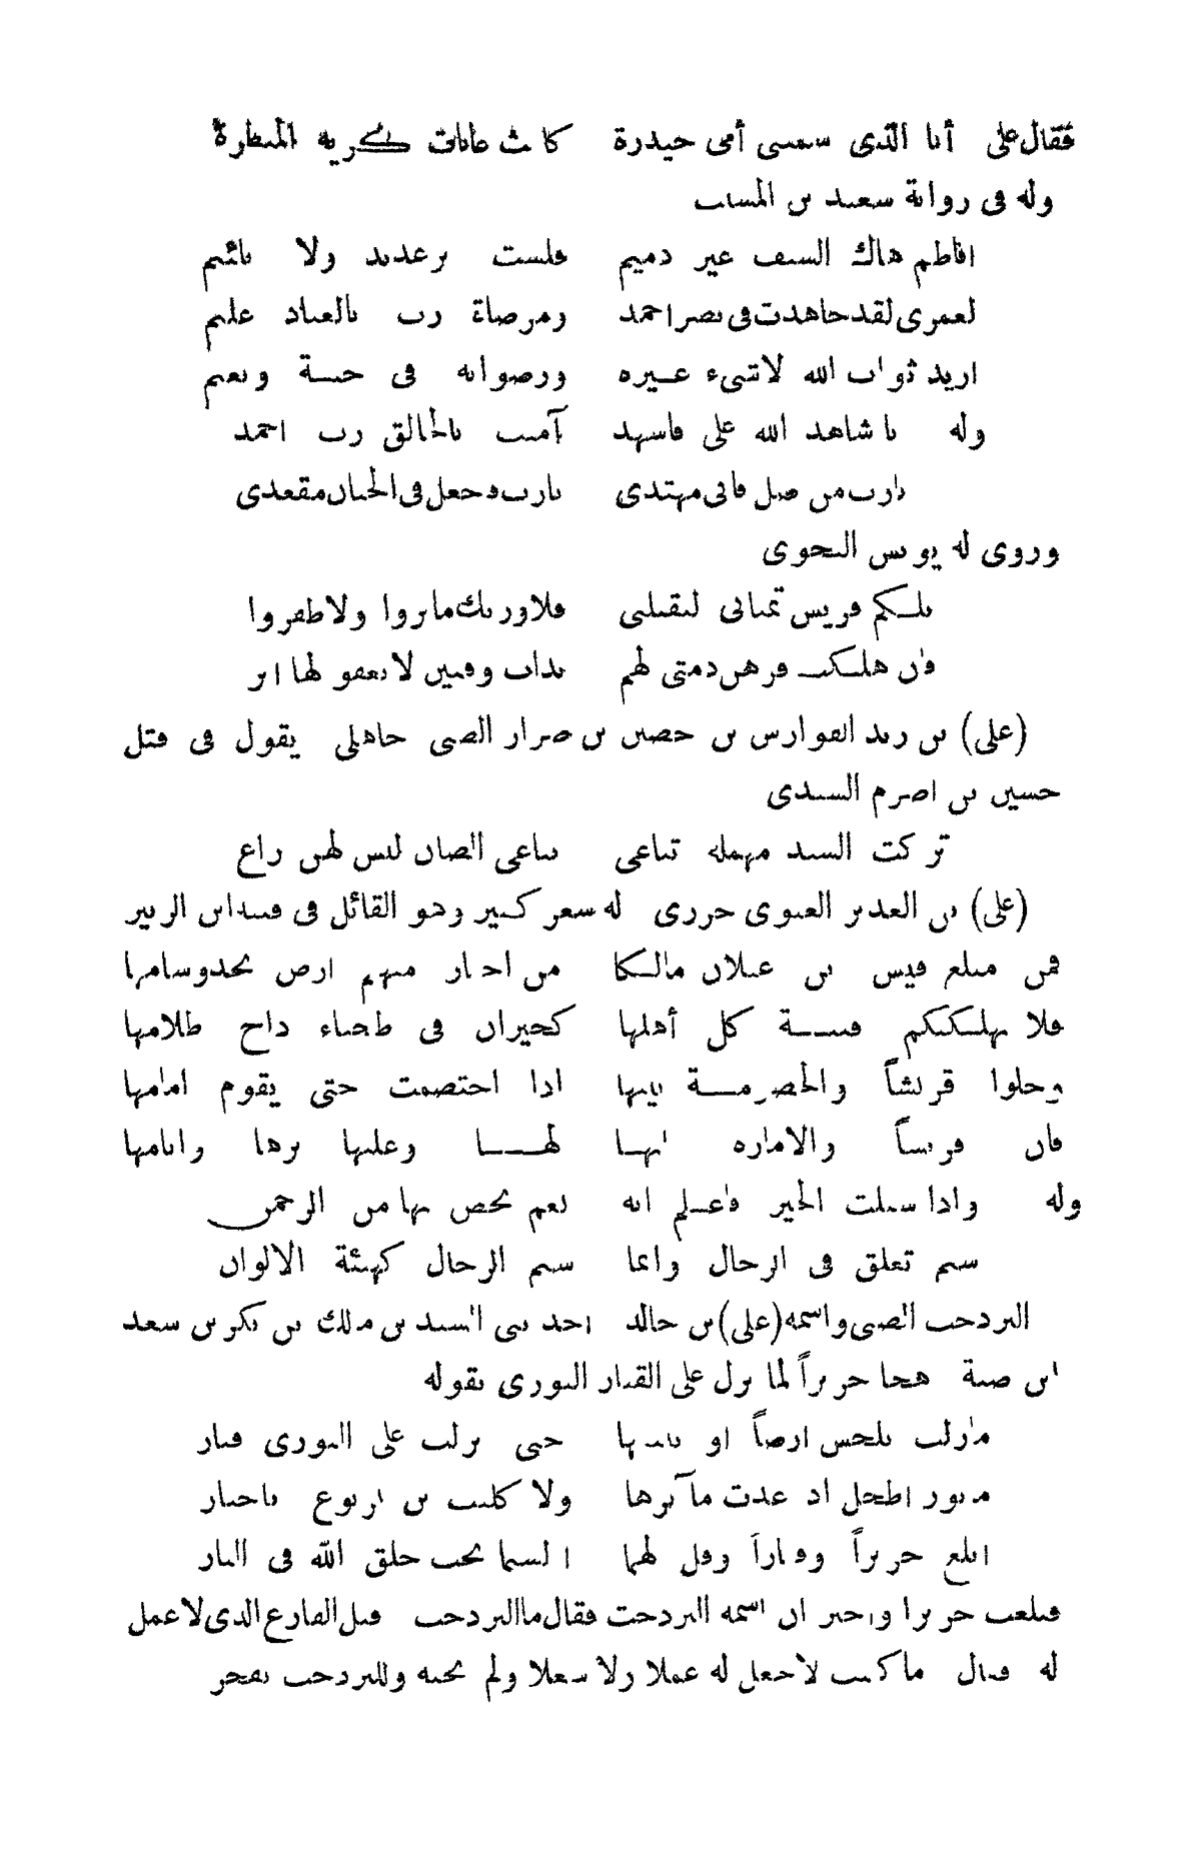 فقال على أنا الذى سمتنى أمى حيدرة كليث غابات كريه المنظرة
وله فى رواية سعيد بن المسيب
افاطم هاك السيف غير ذميم فلست برعديد ولا بلئيم
لعمرى لقد جاهدت فى نصر احمد ومرضاة رب بالعباد عليم
اريد ثواب الله لا شىء غيره ورضوانه فى جنة ونعيم
وله يا شاهد الله على فاشهد آمنت بالخالق رب احمد
يارب من ضل فانى مهتدى يارب فاجعل فى الجنان مقعدى
وروى له يونس النحوى
تلكم قريش تمنانى لتقتلنى فلا وربك ما بروا ولا ظفروا
فان هلكت فرهن ذمتى لهم بذات وقبين لا يعفو لها اثر
(على) بن زيد الفوارس بن حصين بن ضرار الضبى جاهلى يقول فى قتل
حسين بن اصرم السيدى
تركت السيد مهملة تباعى تباعى الضان ليس لهن راع
(على) بن الغدير الغنوى جزرى له شعر كثير وهو القائل فى فتنة ابن الزبير
فمن مبلغ قيس بن عيلان مالكا من احتار منهم ارض نجد وشامها
فلا يهلكنكم فتنة كل أهلها كحيران فى طخياء داج ظلامها
وخلوا قريشاً والخصومة بينها اذا اختصمت حتى يقوم امامها
فان قريشاً والامارة انها لها وعليها برها واثامها
وله واذا سئلت الخير فاعلم انه نعم يخص بها من الرحمن
شيم تعلق فى الرجال وانما شيم الرجال كهيئة الالوان
البردخت الضبى واسمه (على) بن خالد احد بنى السيد بن مالك بن بكر بن سعد
ابن ضبة هجا جريراً لما نزل على القبار الثورى بقوله
مازلت تلحس ارضاً او حتى نزلت على الثورى قبار
اذ عدت مآثرها ولا كليب بن يربوع باخيار
ابلغ جريراً وقباراً وقل لهما خلق الله فى النار
فبلغت جريرا واخبر ان اسمه البردخت فقال ما البردخت قيل الفارغ الذى لا عمل
له فقال ما كنت لاجعل له عملا ولا شغلا ولم يجبه وللبردخت يفخر